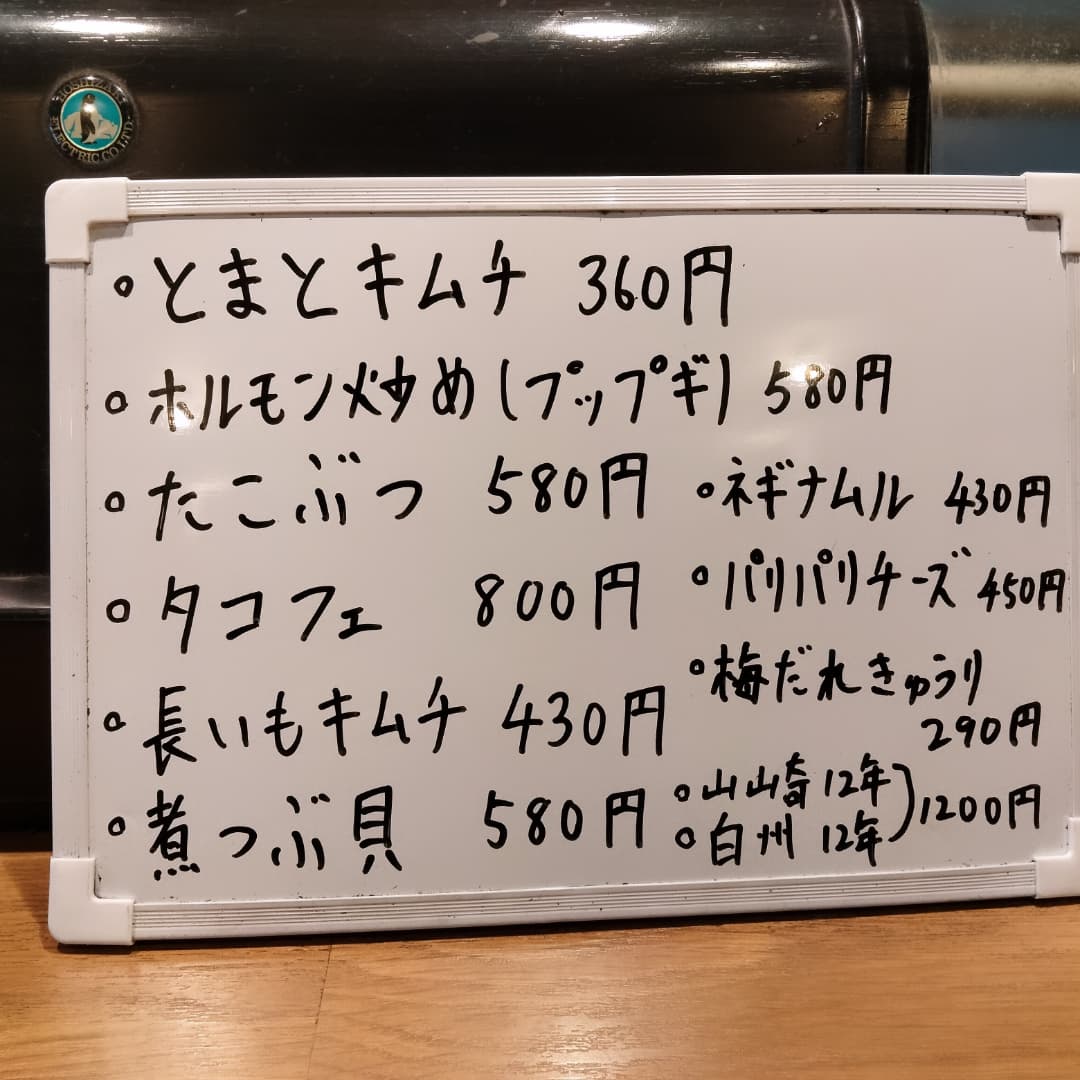 HOSHIZAKI
ELECTRIC CO.,LTD.
とまとキムチ 360円
ホルモン炒め(プップギ) 580円
たこぶつ 580円
タコフェ 800円
長いもキムチ 430円
煮つぶ貝 580円
ネギナムル 430円
パリパリチーズ 450円
梅だれきゅうり
290円
山崎 12年
白州 12年
1200円